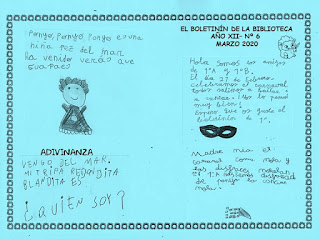 Ponyo, Ponyo, Ponyo es una
niña pez del mar
ha venido verás que
guapa es
ADIVINANZA
VENGO DEL MAR.
MI TRIPA REDONDITA
BLANDITA ES
¿QUIÉN SOY?
EL BOLETINÍN DE LA BIBLIOTECA
AÑO XII- Nº 6
MARZO 2020
Hola Somos los amigos
de 1ºA y 1ºB.
El día 21 de febrero
celebramos el carnaval
todos salimos a bailar y
a cantar. ¡Lo pasamos
muy bien!
Esperamos que os guste el
boletinín de 1º.
Madre mía el
carnaval como mola y
los disfraces molan
1ºA